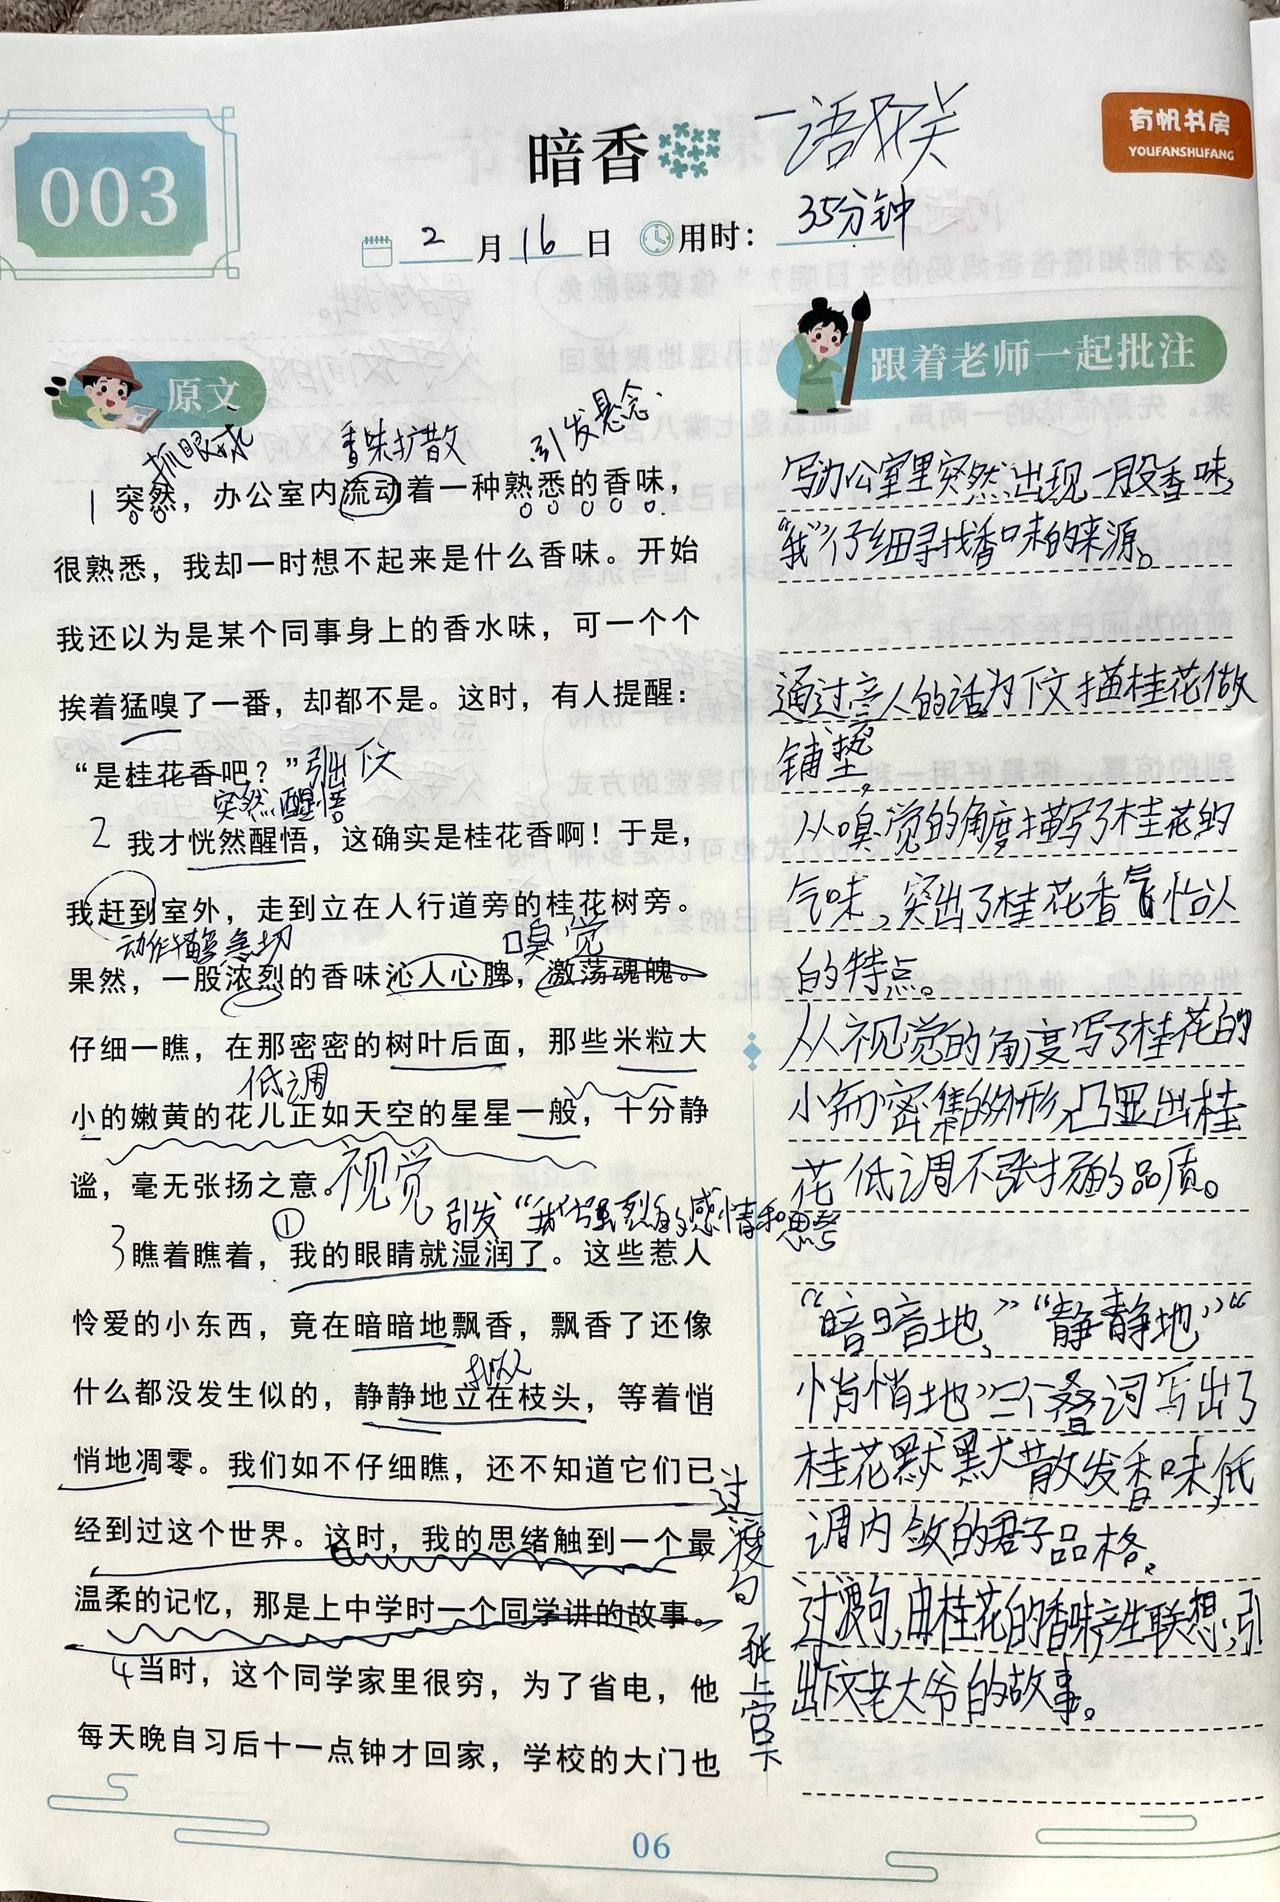 003
暗香
一语双关
有帆书房
YOUFANSHUFANG
2月16日 用时：35分钟
原文
抓眼球 香味扩散 引发悬念
1 突然，办公室内流动着一种熟悉的香味，
很熟悉，我却一时想不起来是什么香味。开始
我还以为是某个同事身上的香水味，可一个个
挨着猛嗅了一番，却都不是。这时，有人提醒：
“是桂花香吧？”引出下文
突然醒悟
2 我才恍然醒悟，这确实是桂花香啊！于是，
我赶到室外，走到立在人行道旁的桂花树旁。
急切 嗅觉
果然，一股浓烈的香味沁人心脾，激荡魂魄。
仔细一瞧，在那密密的树叶后面，那些米粒大
低调
小的嫩黄的花儿正如天空的星星一般，十分静
谧，毫无张扬之意。视觉
① 引发“我”强烈的感情和思考
3 瞧着瞧着，我的眼睛就湿润了。这些惹人
怜爱的小东西，竟在暗暗地飘香，飘香了还像
拟人
什么都没发生似的，静静地立在枝头，等着悄
悄地凋零。我们如不仔细瞧，还不知道它们已
经到过这个世界。这时，我的思绪触到一个最
温柔的记忆，那是上中学时一个同学讲的故事。
过渡句 承上启下
4 当时，这个同学家里很穷，为了省电，他
每天晚自习后十一点钟才回家，学校的大门也
跟着老师一起批注
写办公室里突然出现一股香味，
“我”仔细寻找香味的来源。
通过旁人的话为下文描桂花做
铺垫，
从嗅觉的角度描写了桂花的
气味，突出了桂花香气怡人
的特点。
从视觉的角度写了桂花的
小而密集的外形，凸显出桂
花低调不张扬的品质。
“暗暗地，”“静静地，”“
悄悄地”三个叠词写出了
桂花默默散发香味，低
调内敛的君子品格。
过渡句，由桂花的香味产生联想，引
出下文老大爷的故事。
06